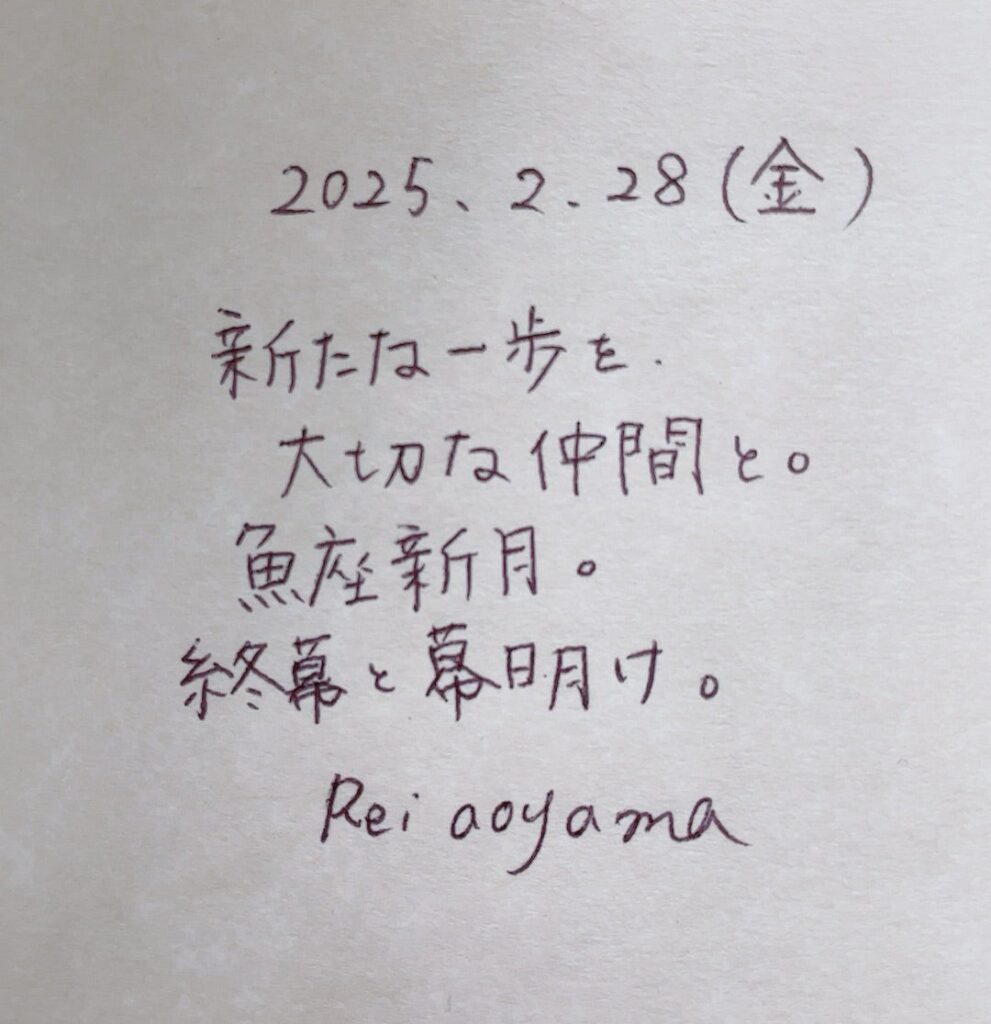 2025、2.28(金)
新たな一歩を.
大切な仲間と。
魚座新月。
終幕と幕明け。
Rei aoyama